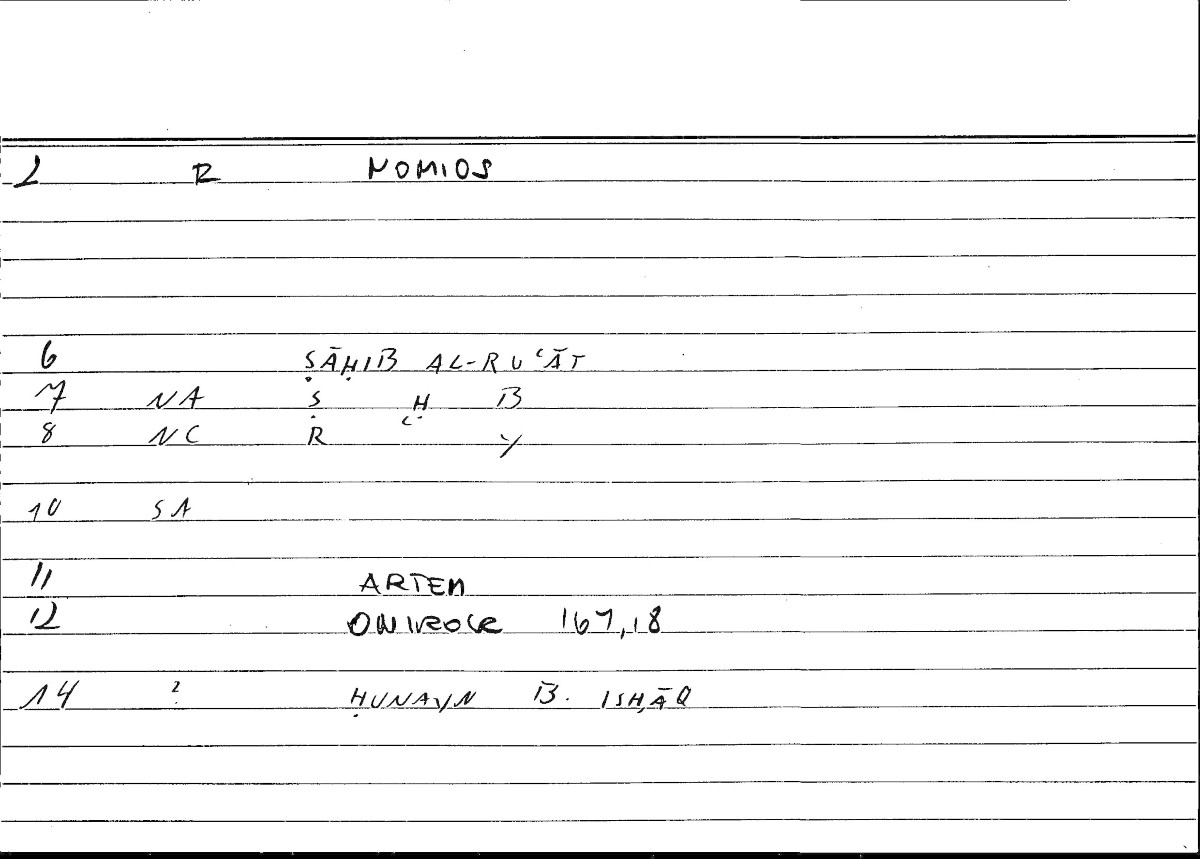 2 R NOMIOS
6 ṢĀḤIB AL-RUʿĀT
7 NA Ṣ Ḥ B
8 NC R ʿ Y
10 SA
11 ARTEM
12 ONIROCR 167,18
14 ? ḤUNAYN B. ISḤĀQ